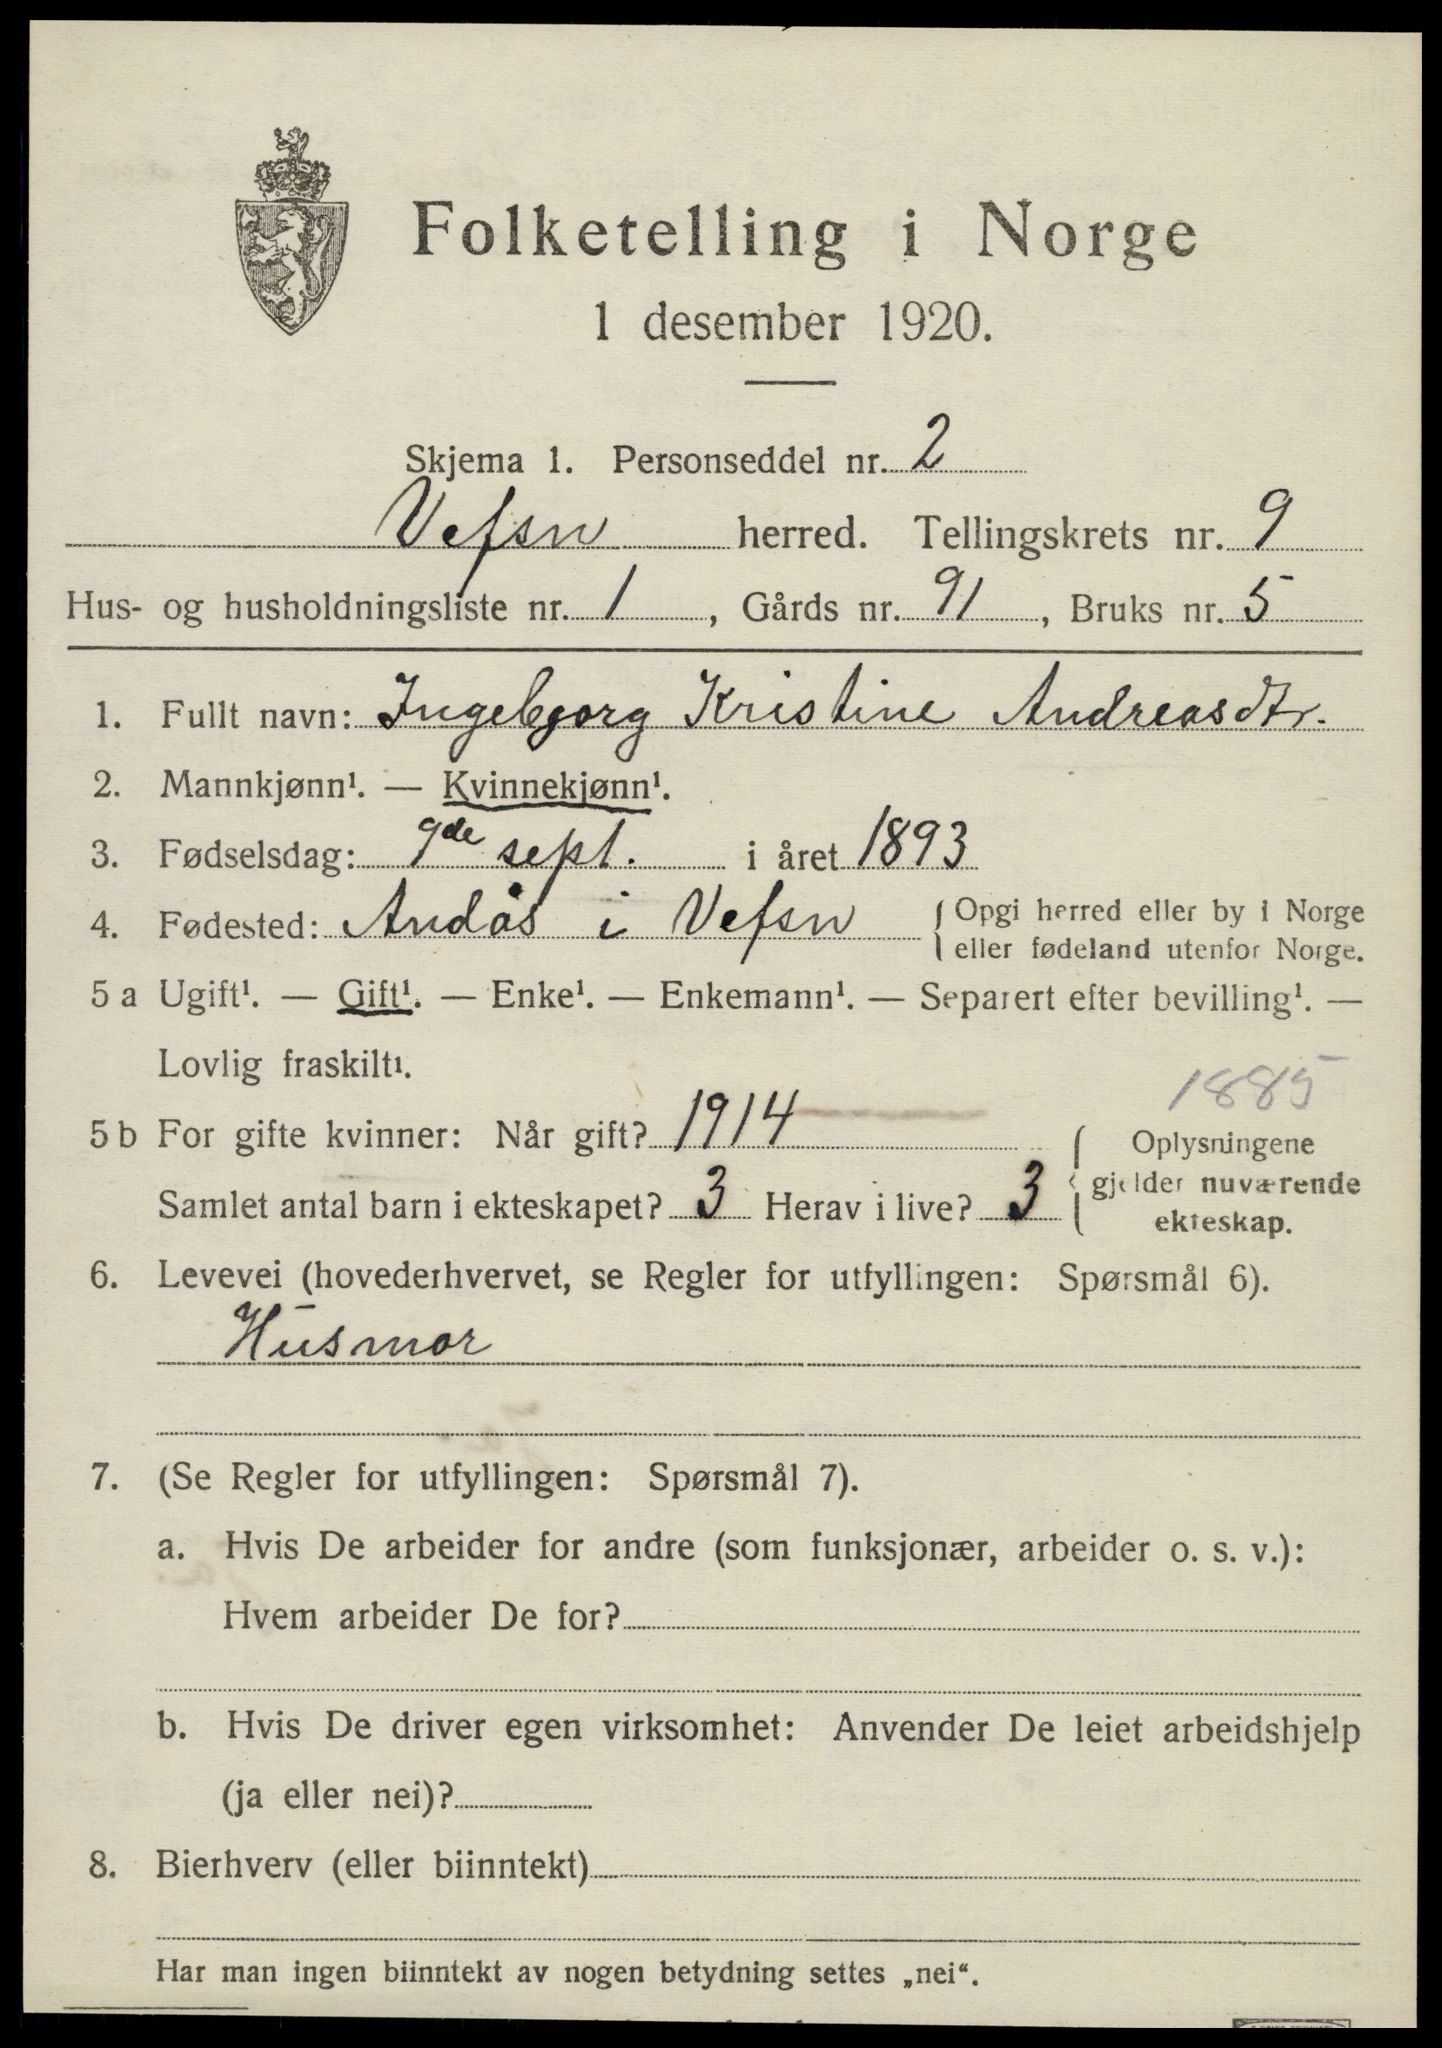 Folketelling i Norge
1 desember 1920.
Skjema 1. Personseddel nr. 2
Vefsn herred. Tellingskrets nr. 9
Hus- og husholdningsliste nr. 1, Gårds nr. 91, Bruks nr. 5
1. Fullt navn: Ingebjorg Kristine Andreasdtr.
2. Mannkjønn¹. — Kvinnekjønn¹.
3. Fødselsdag: 9de sept. i året 1893
4. Fødested: Andås i Vefsn { Opgi herred eller by i Norge
eller fødeland utenfor Norge.
5 a Ugift¹. — Gift¹. — Enke¹. — Enkemann¹. — Separert efter bevilling¹. —
Lovlig fraskilt¹.
1885
5 b For gifte kvinner: Når gift? 1914
Samlet antal barn i ekteskapet? 3 Herav i live? 3
{ Oplysningene
gjelder nuværende
ekteskap.
6. Levevei (hovederhvervet, se Regler for utfyllingen: Spørsmål 6).
Husmor
7. (Se Regler for utfyllingen: Spørsmål 7).
a. Hvis De arbeider for andre (som funksjonær, arbeider o. s. v.):
Hvem arbeider De for?
b. Hvis De driver egen virksomhet: Anvender De leiet arbeidshjelp
(ja eller nei)?
8. Bierhverv (eller biinntekt)
Har man ingen biinntekt av nogen betydning settes „nei“.